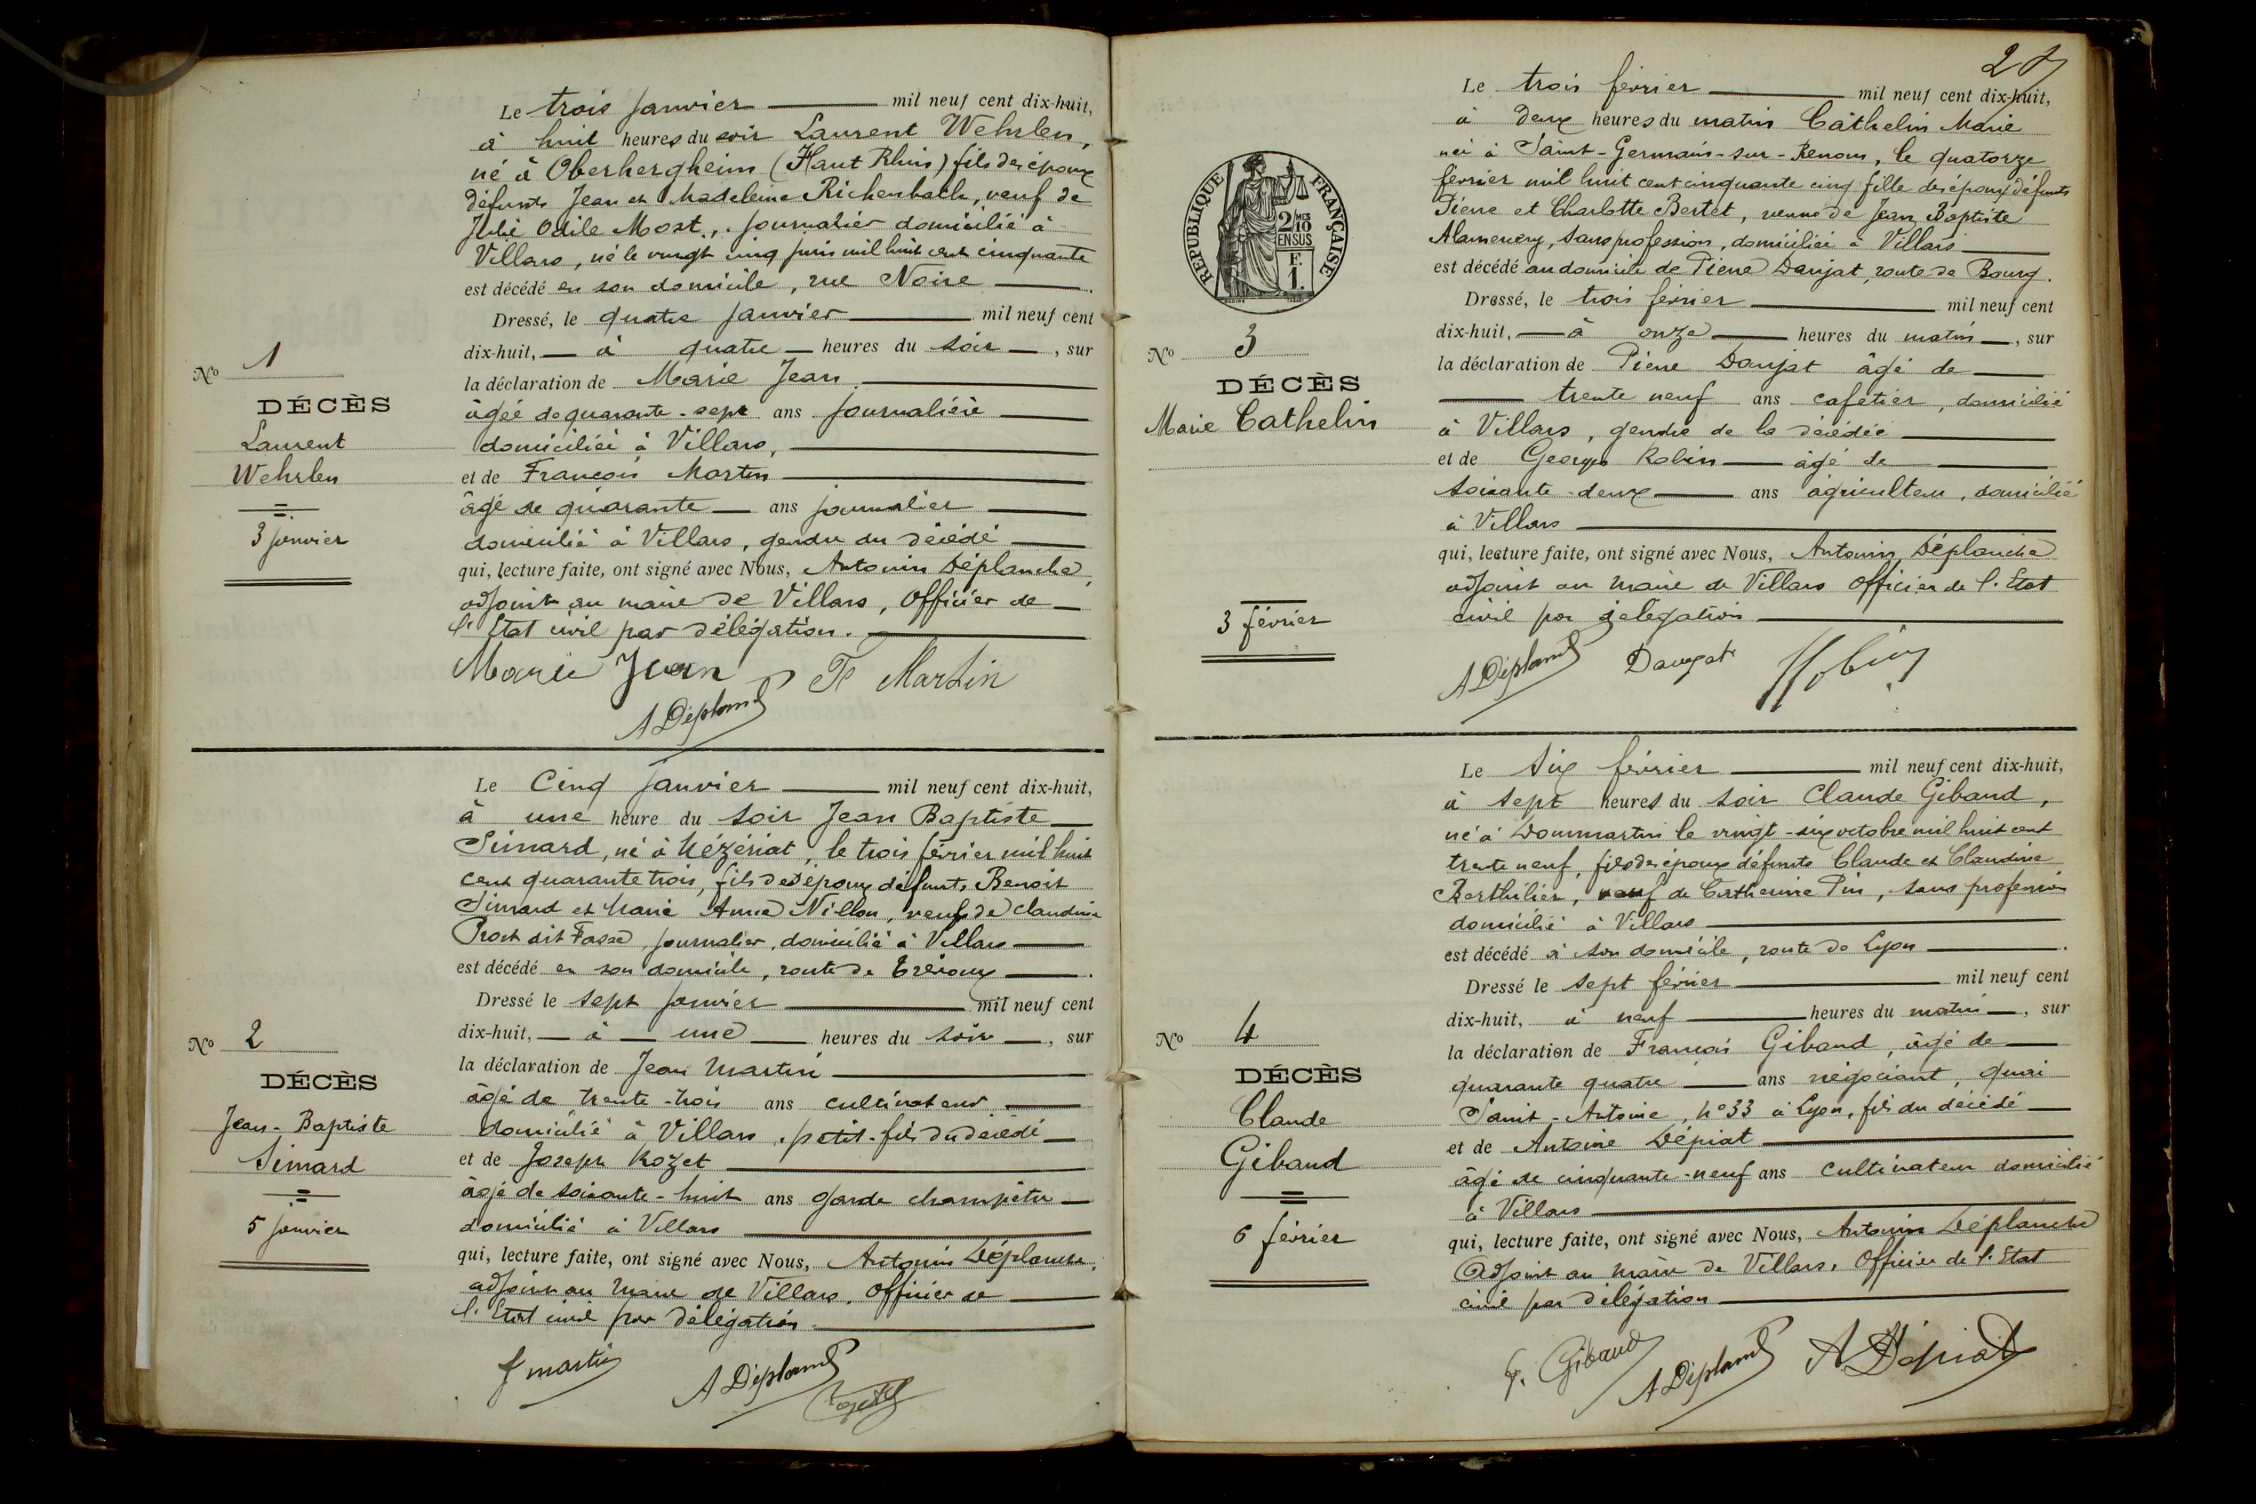 Le trois janvier mil neuf cent dix-huit,
à huit heures du soir Laurent Wehrlen,
né à Oberhergheim (Haut Rhin) fils des époux
défunts Jean et Madeleine Richenbach, veuf de
Julie Odile Most, journalier domicilié à
Villars, né le vingt cinq juin mil huit cent cinquante
est décédé en son domicile, rue Noire
Dressé, le quatre janvier mil neuf cent
dix-huit, à quatre heures du soir, sur
la déclaration de Marie Jean
âgée de quarante-sept ans journalière
domiciliée à Villars,
et de François Martin
âgé de quarante ans journalier
domicilié à Villars, gendre du décédé
qui, lecture faite, ont signé avec Nous, Antonin Déplanche,
adjoint au maire de Villars, Officier de
l'Etat civil par délégation.
Marie Jean Fs Martin
A Déplanche
No 1
DÉCÈS
Laurent
Wehrlen
3 janvier
Le Cinq janvier mil neuf cent dix-huit,
à une heure du soir Jean Baptiste
Simard, né à Mézériat, le trois février mil huit
cent quarante trois, fils des époux défunts Benoit
Simard et Marie Anne Nillon, veuf de Claudine
Prost dit Fasse, journalier, domicilié à Villars
est décédé en son domicile, route de Trévoux
Dressé le sept janvier mil neuf cent
dix-huit, à une heures du soir, sur
la déclaration de Jean Martin
âgé de trente-trois ans cultivateur
domicilié à Villars, petit-fils du décédé
et de Joseph Rozet
âgé de soixante-huit ans garde champêtre
domicilié à Villars
qui, lecture faite, ont signé avec Nous, Antonin Déplanche,
adjoint au Maire de Villars, Officier de
l'Etat civil par délégation.
J martin A Déplanche Rozet
No 2
DÉCÈS
Jean-Baptiste
Simard
5 janvier
Le trois février mil neuf cent dix-huit,
à deux heures du matin Cathelin Marie
née à Saint-Germain-sur-Renom, le quatorze
février mil huit cent cinquante cinq fille des époux défunts
Pierre et Charlotte Bertet, veuve de Jean Baptiste
Alamercery, sans profession, domiciliée à Villars
est décédé au domicile de Pierre Daujat, route de Bourg.
Dressé, le trois février mil neuf cent
dix-huit, à onze heures du matin, sur
la déclaration de Pierre Daujat âgé de
trente neuf ans cafetier, domicilié
à Villars, gendre de la décédée
et de Georges Robin âgé de
soixante-deux ans agriculteur, domicilié
à Villars
qui, lecture faite, ont signé avec Nous, Antonin Déplanche
adjoint au Maire de Villars Officier de l'Etat
civil par délégation
A Déplanche Daujat Robin
RÉPUBLIQUE FRANÇAISE
2/10 MES
EN SUS
F.
1.
No 3
DÉCÈS
Marie Cathelin
3 février
Le Six février mil neuf cent dix-huit,
à sept heures du soir Claude Gibaud,
né à Dommartin le vingt-six octobre mil huit cent
trente neuf, fils des époux défunts Claude et Claudine
Berthilier, veuf de Catherine Pin, sans profession
domicilié à Villars
est décédé à son domicile, route de Lyon
Dressé le sept février mil neuf cent
dix-huit, à neuf heures du matin, sur
la déclaration de François Gibaud, âgé de
quarante quatre ans négociant, quai
Saint-Antoine, No 33 à Lyon, fils du décédé
et de Antoine Dépiat
âgé de cinquante-neuf ans cultivateur domicilié
à Villars
qui, lecture faite, ont signé avec Nous, Antonin Déplanche
Adjoint au Maire de Villars, Officier de l'Etat
civil par délégation
F. Gibaud A Déplanche A Dépiat
No 4
DÉCÈS
Claude
Gibaud
6 février